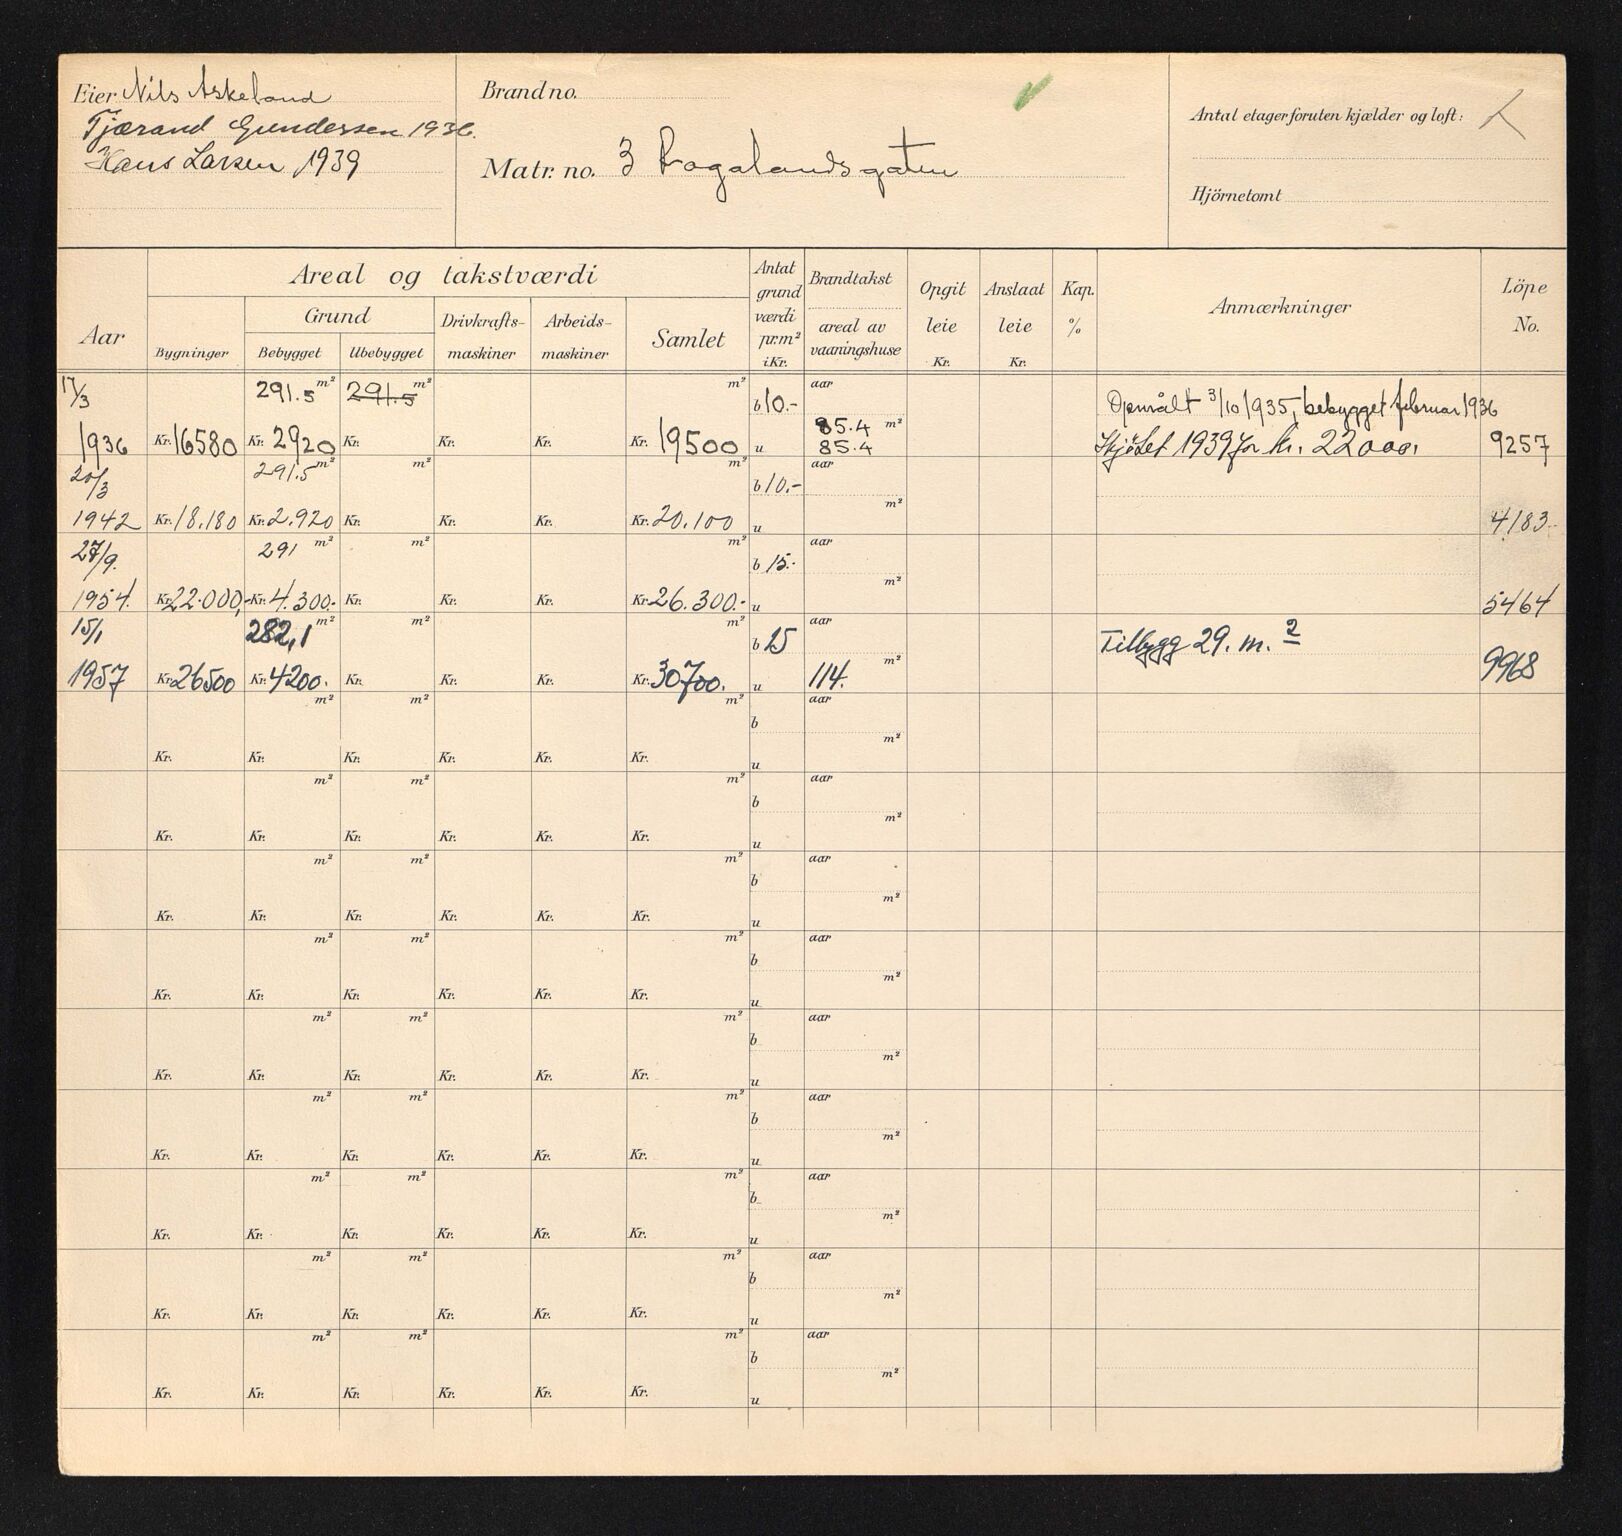 Eier Nils Askeland
Tjærand Gundersen 1936.
Hans Larsen 1939
Brand no.
Matr. no. 3 Rogalandsgaten
Antal etager foruten kjælder og loft:
Hjörnetomt
Aar
Areal og takstværdi
Bygninger
Grund
Bebygget
Ubebygget
Drivkrafts-
maskiner
Arbeids-
maskiner
Samlet
Antat
grund
værdi
pr.m²
i Kr.
Brandtakst
areal av
vaaningshuse
Opgit
leie
Kr.
Anslaat
leie
Kr.
Kap.
%
Anmærkninger
Löpe
No.
17/3 291.5 m² 291.5 m² m² b 10.- aar Opmålt 3/10 1935, bebygget februar 1936
85.4 m²
1936 Kr. 16580 Kr. 2920 Kr. Kr. Kr. Kr. 19500 u 85.4 Skjötet 1939 for kr. 22000. 9257
20/3 291.5 m² m² m² b 10.- aar
m²
1942 Kr. 18.180 Kr. 2.920 Kr. Kr. Kr. Kr. 20.100 u 4183.
27/9. 291 m² m² m² b 15.- aar
m²
1954. Kr. 22.000,- Kr. 4.300.- Kr. Kr. Kr. Kr. 26.300.- u 5464
15/1 282,1 m² m² m² b 15 aar Tilbygg 29. m.²
m²
1957 Kr. 26500 Kr. 4200. Kr. Kr. Kr. Kr. 30700. u 114. 9968
m² m² m² aar
b
m²
Kr. Kr. Kr. Kr. Kr. Kr. u
m² m² m² aar
b
m²
Kr. Kr. Kr. Kr. Kr. Kr. u
m² m² m² aar
b
m²
Kr. Kr. Kr. Kr. Kr. Kr. u
m² m² m² aar
b
m²
Kr. Kr. Kr. Kr. Kr. Kr. u
m² m² m² aar
b
m²
Kr. Kr. Kr. Kr. Kr. Kr. u
m² m² m² aar
b
m²
Kr. Kr. Kr. Kr. Kr. Kr. u
m² m² m² aar
b
m²
Kr. Kr. Kr. Kr. Kr. Kr. u
m² m² m² aar
b
m²
Kr. Kr. Kr. Kr. Kr. Kr. u
m² m² m² aar
b
m²
Kr. Kr. Kr. Kr. Kr. Kr. u